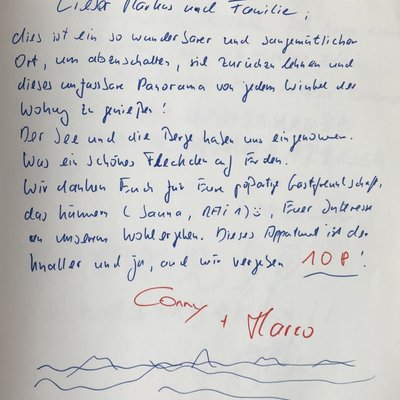 Lieber Markus und Familie,
dies ist ein so wunderbarer und saugemütlicher
Ort, um abzuschalten, sich zurückzulehnen und
dieses unfassbare Panorama von jedem Winkel der
Wohnung zu genießen!
Der See und die Berge haben uns eingenommen.
Was ein schönes Fleckchen auf Erden.
Wir danken Euch für Eure großartige Gastfreundschaft,
das (Sauna, ☺, Euer Interesse
an unserem Wohlergehen. Dieses Appartment ist der
Knaller und ja, auch wir vergeben 10 !
Conny
+ Marco